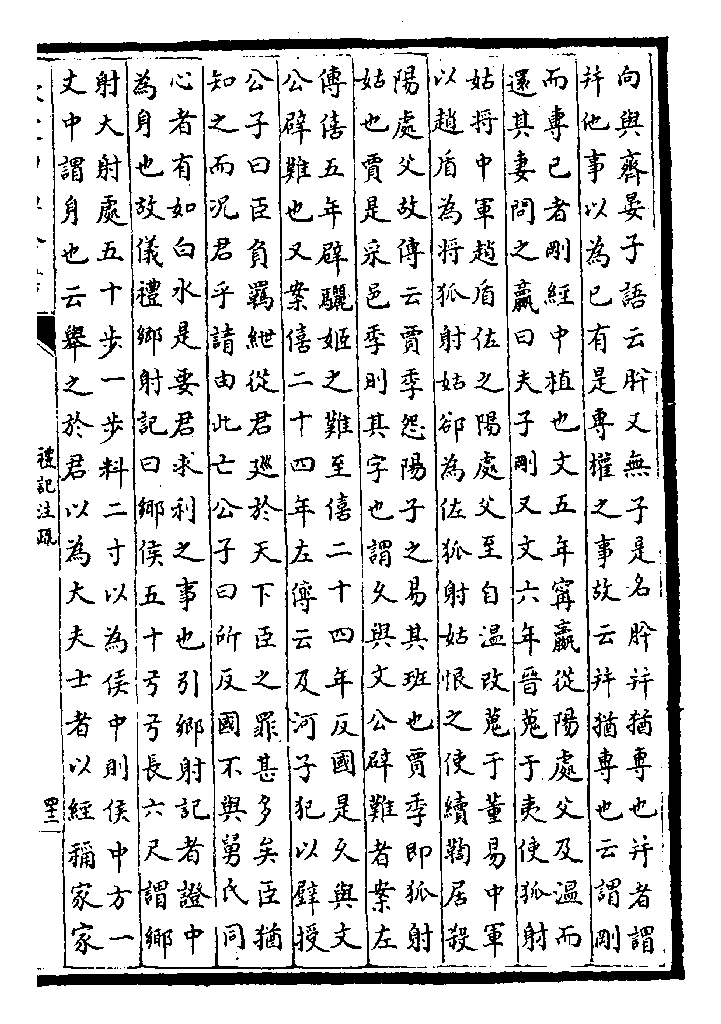 向與齊晏子語云肸又無子是名肸幷猶專也幷者謂
幷他事以為已有是專權之事故云幷猶專也云謂剛
而專已者剛經中植也文五年甯嬴從陽處父及溫而
還其妻問之嬴曰夫子剛又文六年晉蒐于夷使狐射
姑將中軍趙盾佐之陽處父至自溫改蒐于董易中軍
以趙盾為將狐射姑卻為佐狐射姑恨之使續鞫居殺
陽處父故傳云賈季怨陽子之易其班也賈季即狐射
姑也賈是采邑季則其字也謂久與文公辟難者案左
傳僖五年辟驪姬之難至僖二十四年反國是久與文
公辟難也又案僖二十四年左傳云及河子犯以璧授
公子曰臣負羈紲從君廵於天下臣之罪甚多矣臣猶
知之而况君乎請由此亡公子曰所反國不與舅氏同
心者有如白水是要君求利之事也引鄉射記者證中
為身也故儀禮鄉射記曰鄉侯五十弓弓長六尺謂鄉
射大射處五十步一步料二寸以為侯中則侯中方一
丈中謂身也云舉之於君以為大夫士者以經稱家家
禮記注疏